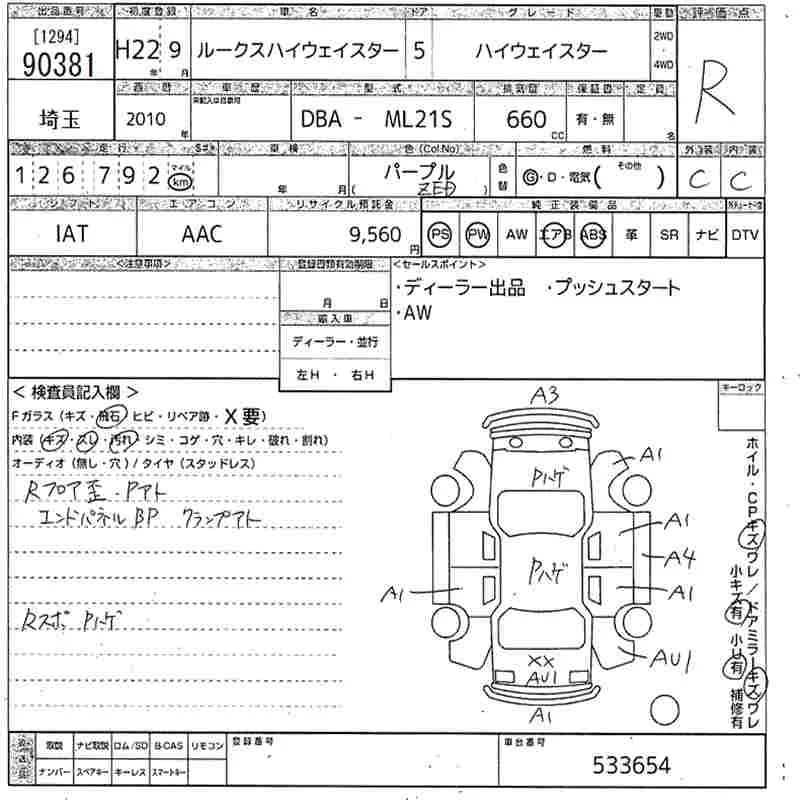 出品番号 初度登録 車名 ドア グレード 駆動 評価点
[1294]
90381 H22 9 ルークスハイウェイスター 5 ハイウェイスター 2WD ・ 4WD R
年 月
西暦 車歴 型式 排気量 保証書 定員
未記入は自家用
埼玉 2010 年 DBA - ML21S 660 CC 有・無 名
走行 S#ﾁ 車検 色(Col.No) 燃料 外装 内装
126792 マイル km 年 月 パープル ( ZED ) 色替 G・D・電気( その他 ) C C
シフト エアコン リサイクル預託金 純正装備品
IAT AAC 9,560 円 PS PW AW エアB ABS 革 SR ナビ DTV
<注意事項> 登録書類有効期限 <セールスポイント>
月 日
・ディーラー出品 ・プッシュスタート
・AW
輸入車
ディーラー・並行
左H ・ 右H
< 検査員記入欄 > キーロック
Fガラス (キズ・飛石・ヒビ・リペア跡・X要)
内装 (キズ・スレ・汚れ・シミ・コゲ・穴・キレ・破れ・割れ)
オーディオ (無し・穴) / タイヤ (スタッドレス)
Rフロア歪・Pアト
エンドパネルBP クランプアト
Rスポ Pハゲ
A3
Pハゲ
A1
A1
A4
Pハゲ
A1
A1
XX
AU1
AU1
A1
ホイル・CPキズワレ/ドアミラーキズワレ
小キズ有 小U有 補修有
取説 ナビ取説 ロム/SD B-CAS リモコン 登録番号 車台番号
ナンバー スペアキー キーレス スマートキー
533654